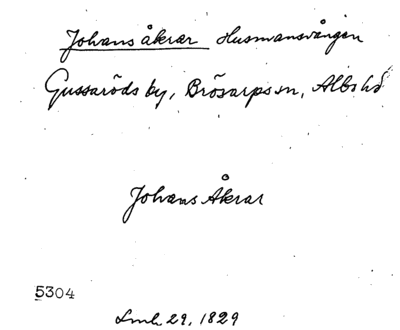 Johans åkrar Husmansvången
Gussaröds by, Brösarps sn, Albo hd
Johans Åkrar
5304
Lmh 29, 1829